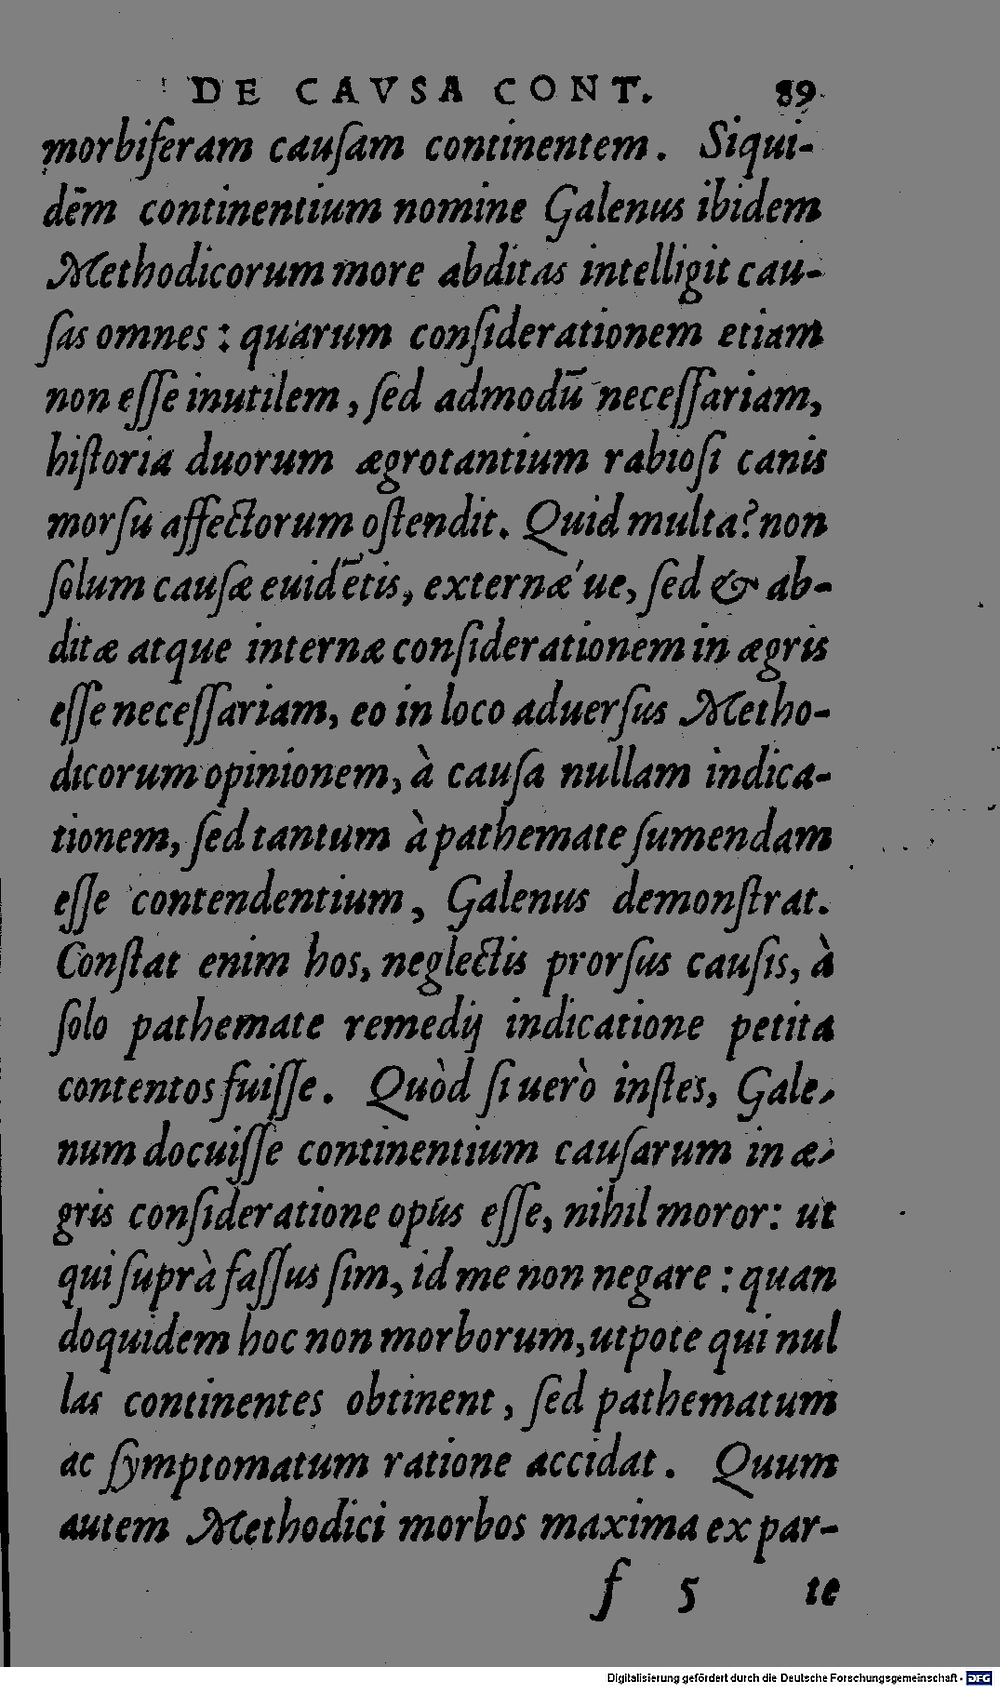 DE CAVSA CONT. 89
morbiferam cauſam continentem. Siqui-
dēm continentium nomine Galenus ibidem
Methodicorum more abditas intelligit cau-
ſas omnes : quarum conſiderationem etiam
non eſſe inutilem, ſed admodū neceſſariam,
hiſtoria duorum ægrotantium rabioſi canis
morſu affectorum oſtendit. Quid multa? non
ſolum cauſæ euidētis, externæ'ue, ſed & ab-
ditæ atque internæ conſiderationem in ægris
eſſe neceſſariam, eo in loco aduerſus Metho-
dicorum opinionem, à cauſa nullam indica-
tionem, ſed tantum à pathemate ſumendam
eſſe contendentium, Galenus demonſtrat.
Conſtat enim hos, neglectis prorſus cauſis, à
ſolo pathemate remedij indicatione petita
contentos fuiſſe. Quòd ſi uerò inſtes, Gale-
num docuiſſe continentium cauſarum in æ-
gris conſideratione opus eſſe, nihil moror: ut
qui ſuprà faſſus ſim, id me non negare : quan
doquidem hoc non morborum, utpote qui nul
las continentes obtinent, ſed pathematum
ac ſymptomatum ratione accidat. Quum
autem Methodici morbos maxima ex par-
f 5 te
Digitalisierung gefördert durch die Deutsche Forschungsgemeinschaft - DFG